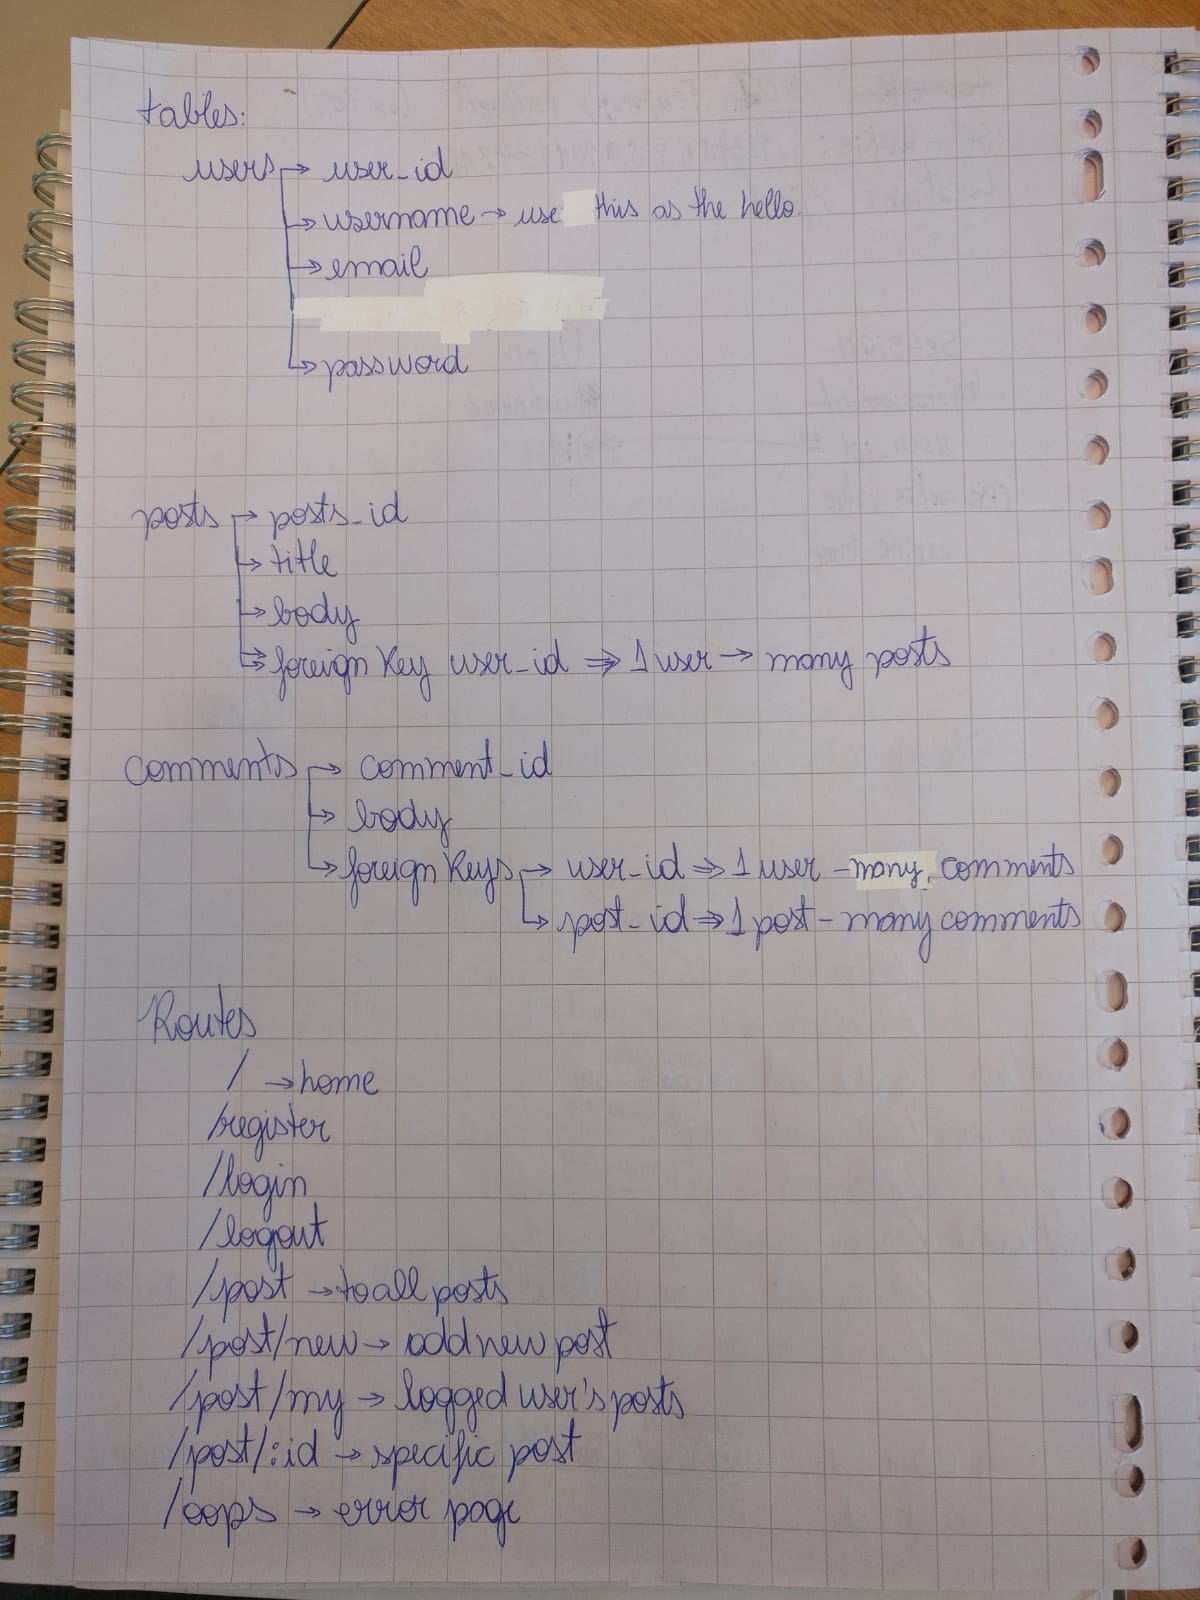 tables:
users → user_id
→ username → use this as the hello
→ email
→ password
posts → posts_id
→ title
→ body
→ foreign key user_id ⇒ 1 user → many posts
comments → comment_id
→ body
→ foreign keys → user_id ⇒ 1 user - many comments
→ post_id ⇒ 1 post - many comments
Routes
/ → home
/register
/login
/logout
/post → to all posts
/post/new → add new post
/post/my → logged user's posts
/post/:id → specific post
/oops → error page